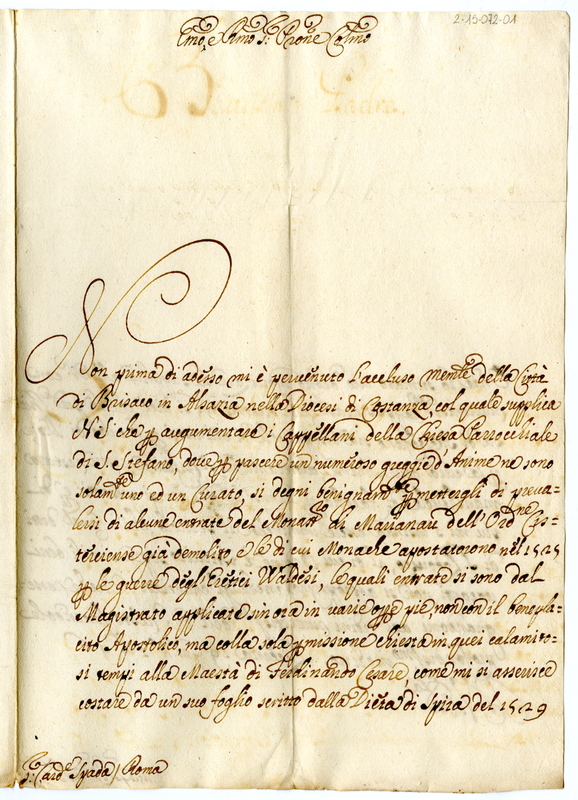 2-15-072-01
Emo, e Rmo Sr: Prone Colmo
Non prima di adesso mi è pervenuto l'accluso Memle della Città
di Brisaco in Alsazia nella Diocesi di Costanza, col quale supplica
N S che p augumentare i Cappellani della Chiesa Parrocchiale
di S. Stefano, dove p pascere un numeroso gregge d'Anime ne sono
solamte uno ed un Curato, si degni benignamte pmettergli di preva=
lersi di alcune entrate del Monastro di Marianau dell'Ordne Cis=
terciense già demolito, e le di cui Monache apostatorono nel 1525
p le guerre degl'Eretici Waldesi, le quali entrate si sono dal
Magistrato applicate sin ora in varie ope pie, non con il benepla=
cito Apostolico, ma colla sola pmissione chiesta in quei calamito=
si tempi alla Maestà di Ferdinando Cesare, come mi si asserisce
costare da un suo foglio scritto dalla Dieta di Spira del 1529
Sr: Cardle Spada / Roma